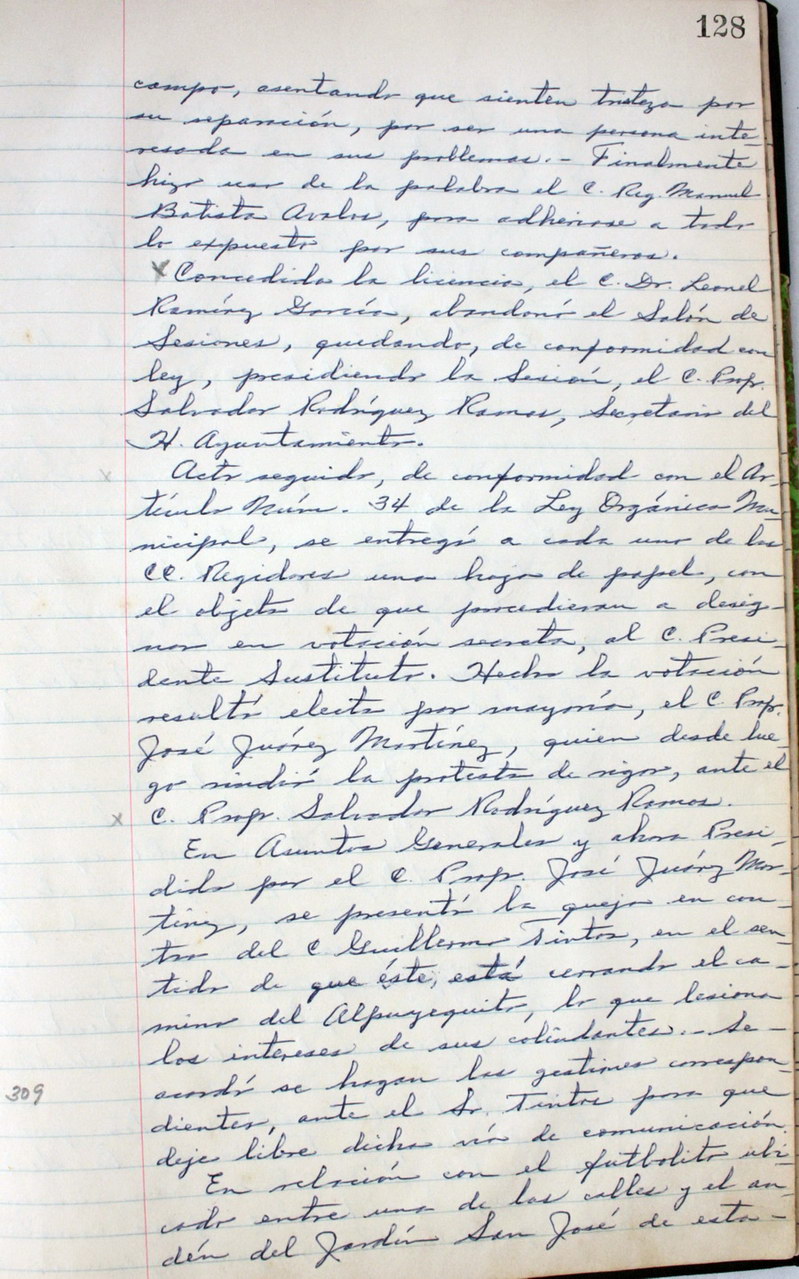 128
campo, asentando que sienten tristeza por
su separación, por ser una persona inte-
resada en sus problemas.- Finalmente
hizo uso de la palabra el C. Reg. Manuel
Batista Avalos, para adherirse a todo
lo expuesto por sus compañeros.
x Concedida la licencia, el C. Dr. Leonel
Ramírez García, abandonó el Salón de
Sesiones, quedando, de conformidad con
ley, presidiendo la Sesión, el C. Profr.
Salvador Rodríguez Ramos, Secretario del
H. Ayuntamiento.
x Acto seguido, de conformidad con el Ar-
tículo Núm. 34 de la Ley Orgánica Mu-
nicipal, se entregó a cada uno de los
CC. Regidores una hoja de papel, con
el objeto de que procedieran a desig-
nar en votación secreta, al C. Presi-
dente Sustituto. Hecha la votación
resultó electo por mayoría, el C. Profr.
José Juárez Martínez, quien desde lue-
go rindió la protesta de rigor, ante el
x C. Profr. Salvador Rodríguez Ramos.
En Asuntos Generales y ahora Presi-
dido por el C. Profr. José Juárez Mar-
tínez, se presentó la queja en con-
tra del C Guillermo Tintos, en el sen-
tido de que éste, está cerrando el ca-
mino del Alpuyequito, lo que lesiona
los intereses de sus colindantes.- Se-
acordó se hagan las gestiones correspon-
309
dientes, ante el Sr. Tintos para que
deje libre dicha vía de comunicación.
En relación con el futbolito ubi-
cado entre una de las calles y el an-
dén del Jardín San José de esta-